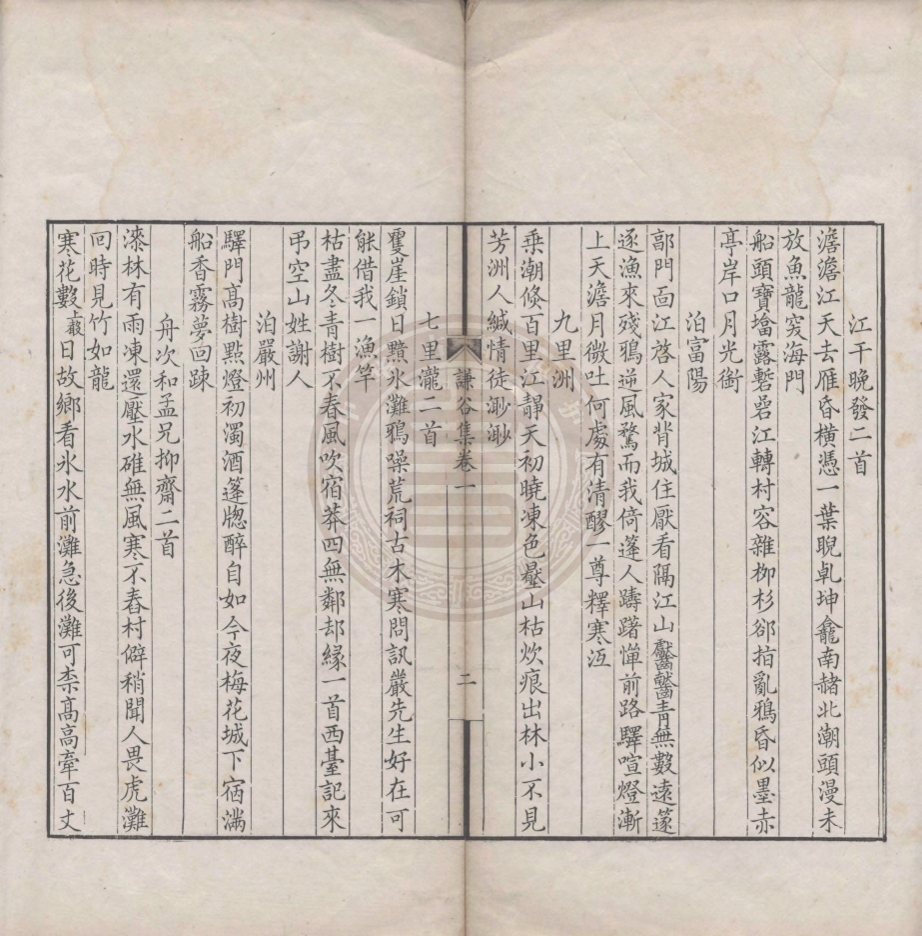 江干晚發二首
澹澹江天去雁昏橫憑一葉睨乾坤龕南赭北潮頭漫未
放魚龍突海門
船頭寶墖露塹礐江轉村容雜柳杉郤指亂鴉昏似墨赤
亭岸口月光銜
泊富陽
郭門面江啓人家背城住厭看隔江山青無數遠篴
逐漁來殘鴉逆風騖而我倚篷人躊躇憚前路驛喧燈漸
上天澹月微吐何處有清醪一尊釋寒沍
九里洲
乗潮倏百里江靜天初曉凍色壓山枯炊痕出林小不見
芳洲人緘情徒渺渺
謙谷集卷一
二
七里瀧二首
崖鎖日黲氷灘鴉噪荒祠古木寒問訊嚴先生好在可
能借我一漁竿
枯盡冬青樹不春風吹宿莽四無鄰却緣一首西臺記來
弔空山姓謝人
泊嚴州
驛門高樹點燈初濁酒篷牕醉自如今夜梅花城下宿滿
船香霧夢回踈
舟次和孟兄抑齋二首
漆林有雨凍還壓水碓無風寒不舂村僻稍聞人畏虎灘
回時見竹如龍
寒花數日故鄉看氷水前灘急後灘可柰高高牽百丈